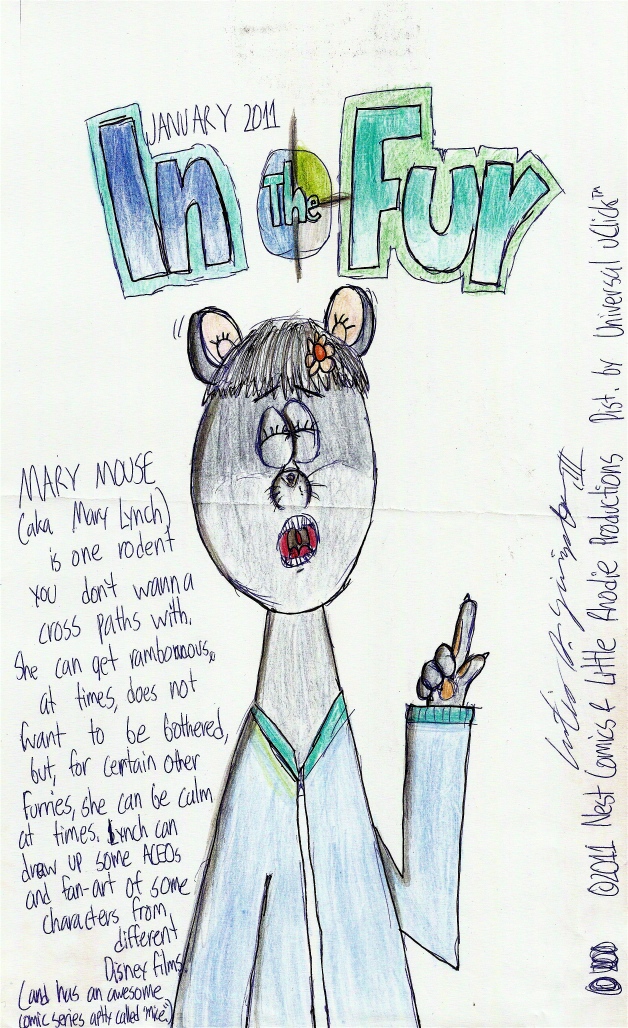 JANUARY 2011
In The Fur
MARY MOUSE
(aka Mary Lynch)
is one rodent
you don't wanna
cross paths with.
She can get rambonous,
at times, does not
want to be bothered,
but, for certain other
furries, she can be calm
at times. Lynch can
draw up some ACEOs
and fan-art of some
characters from
different
Disney films.
(and has an awesome
comic series aptly called "Mice".)
©2011 Nest Comics & Little Rhodie Productions Dist. by Universal uClick™